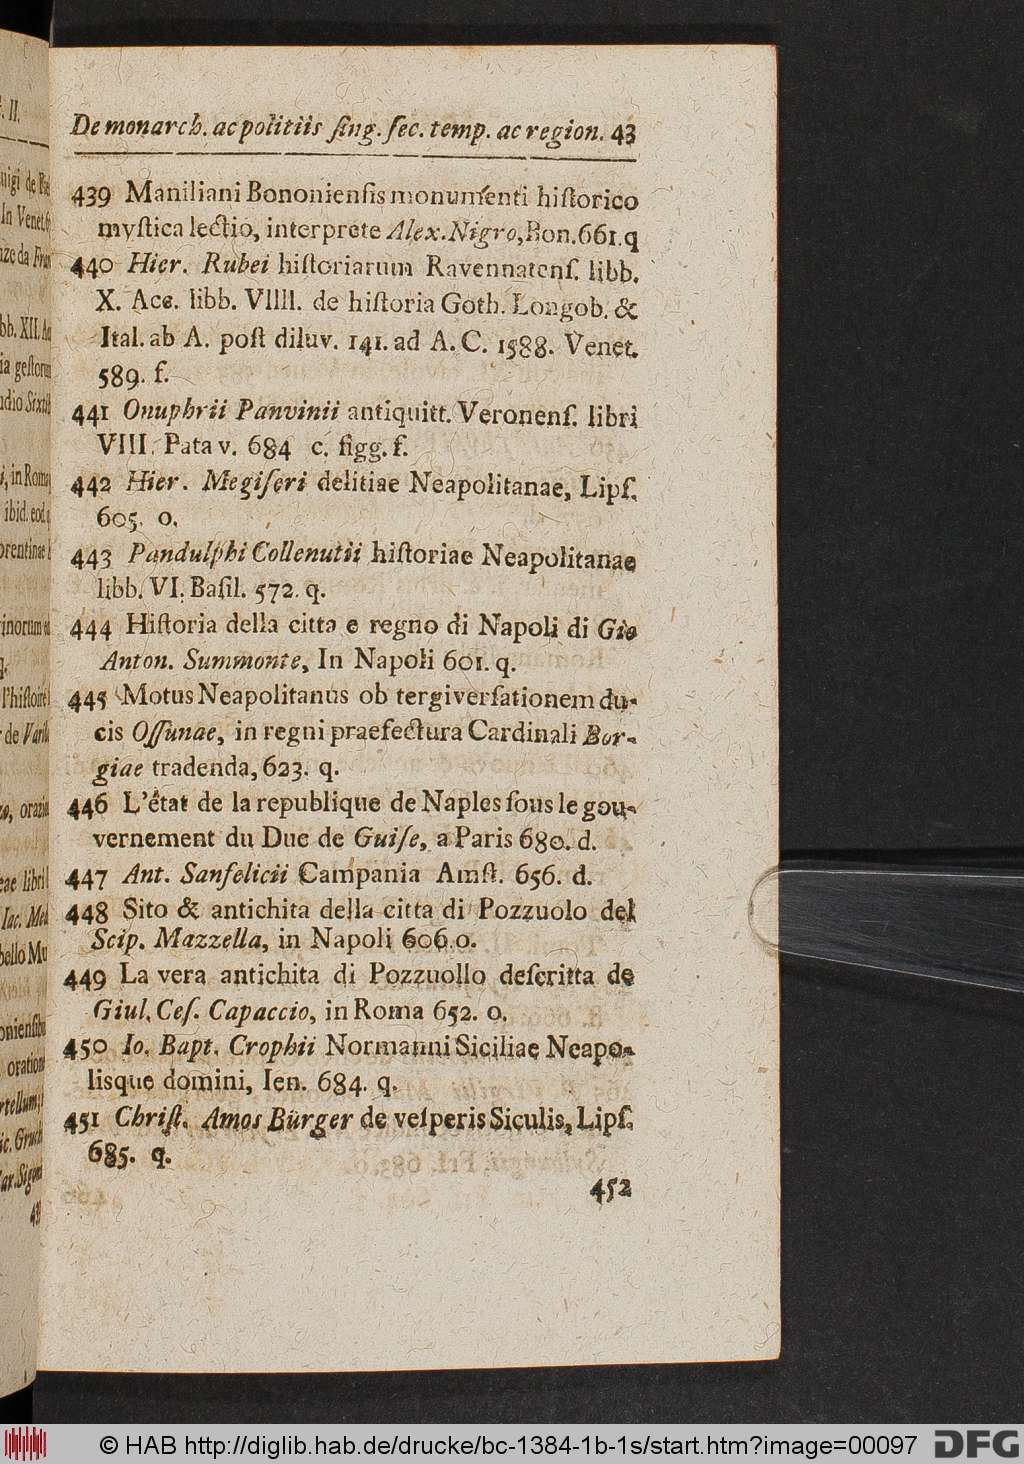 De monarch. ac politiis ſing. ſec. temp. ac region. 43
439 Maniliani Bononienſis monumenti hiſtorico
myſtica lectio, interprete Alex. Nigro, Bon. 661. q
440 Hier. Rubei hiſtoriarum Ravennatenſ. libb.
X. Acc. libb. VIIII. de hiſtoria Goth. Longob. &
Ital. ab A. poſt diluv. 141. ad A. C. 1588. Venet.
589. f.
441 Onuphrii Panvinii antiquitt. Veronenſ. libri
VIII. Patav. 684 c. figg. f.
442 Hier. Megiſeri delitiae Neapolitanae, Lipſ.
605. o.
443 Pandulphi Collenutii hiſtoriae Neapolitanae
libb. VI. Baſil. 572. q.
444 Hiſtoria della citta e regno di Napoli di Gio
Anton. Summonte, In Napoli 601. q.
445 Motus Neapolitanus ob tergiverſationem du-
cis Oſſunae, in regni praefectura Cardinali Bor-
giae tradenda, 623. q.
446 L'état de la republique de Naples ſous le gou-
vernement du Duc de Guiſe, a Paris 680. d.
447 Ant. Sanfelicii Campania Amſt. 656. d.
448 Sito & antichita della citta di Pozzuolo del
Scip. Mazzella, in Napoli 606. o.
449 La vera antichita di Pozzuollo deſcritta de
Giul. Ceſ. Capaccio, in Roma 652. o.
450 Io. Bapt. Crophii Normanni Siciliae Neapo-
lisque domini, Ien. 684. q.
451 Chriſt. Amos Bürger de veſperis Siculis, Lipſ.
685. q.
452
© HAB http://diglib.hab.de/drucke/bc-1384-1b-1s/start.htm?image=00097
DFG